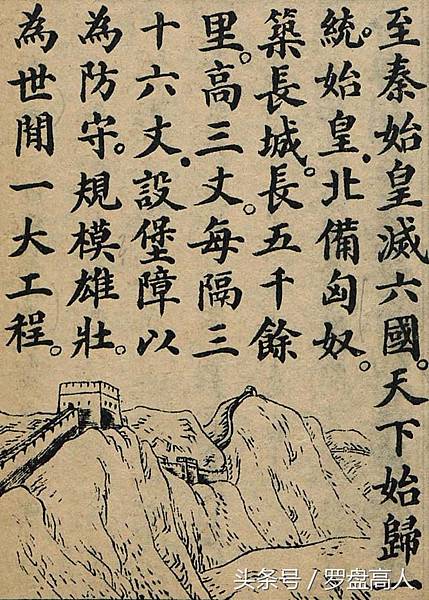 至秦始皇滅六國。天下始歸一
統。始皇北備匈奴。
築長城。長五千餘
里。高三丈。每隔三
十六丈。設堡障以
為防守。規模雄壯。
為世間一大工程。
头条号 / 罗盘高人